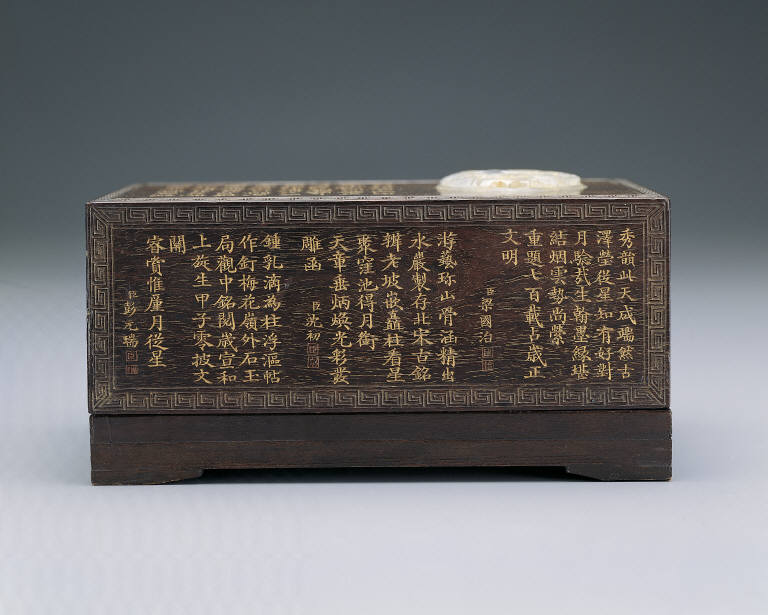 秀韻此天成端然古
澤瑩從星知有好對
月驗哉生翰墨緣堪
結烟雲勢尚縈
重題七百載古歲正
文明
臣梁國治
游藝珎山骨涵精出
水巖製存北宋古銘
辨老坡嵌矗柱看星
聚窪池得月銜
天章垂炳煥光彩發
雕函
臣沈初
鍾乳滴為柱浮漚帖
作釘梅花嶺外石玉
局觀中銘閱歲宣和
上旋生甲子零披文
關
睿賞惟厪月從星
臣彭元瑞